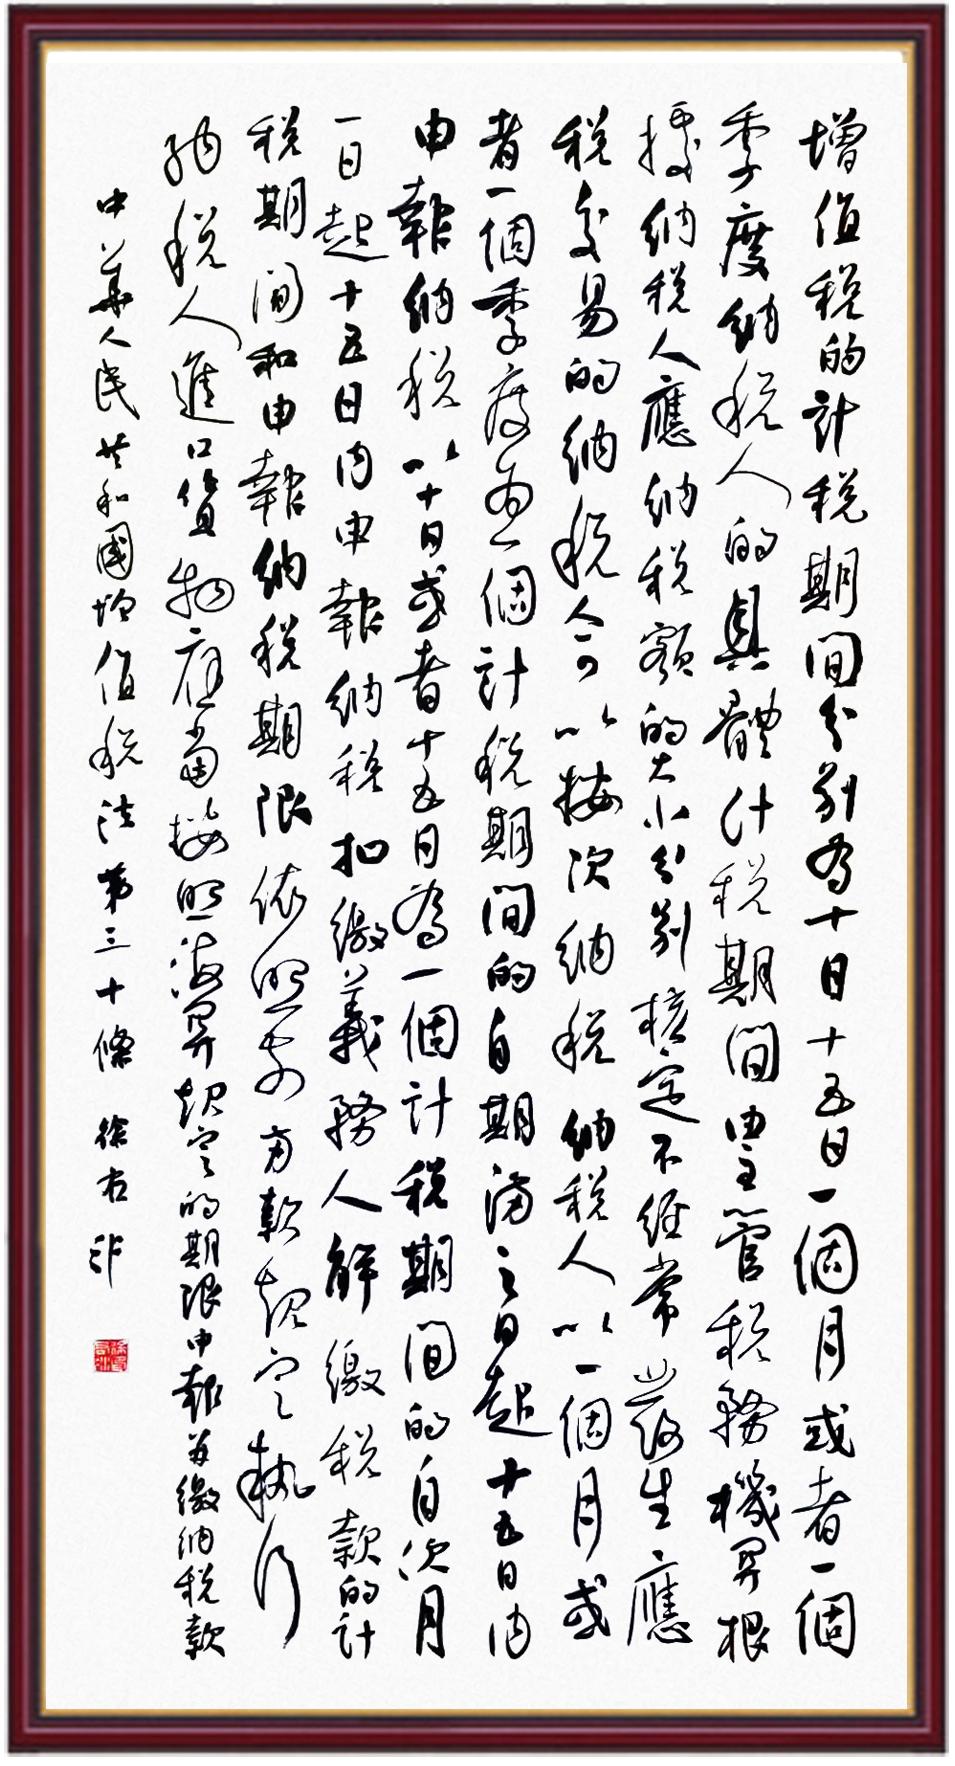 增值稅的計稅期間分別為十日十五日一個月或者一個
季度納稅人的具體計稅期間由主管稅務機關根
據納稅人應納稅額的大小分別核定不經常發生應
稅交易的納稅人可以按次納稅納稅人以一個月或
者一個季度為一個計稅期間的自期滿之日起十五日內
申報納稅以十日或者十五日為一個計稅期間的自次月
一日起十五日內申報納稅扣繳義務人解繳稅款的計
稅期間和申報納稅期限依照前兩款規定執行
納稅人進口貨物應當按照海關規定的期限申報並繳納稅款
中華人民共和國增值稅法第三十條 徐